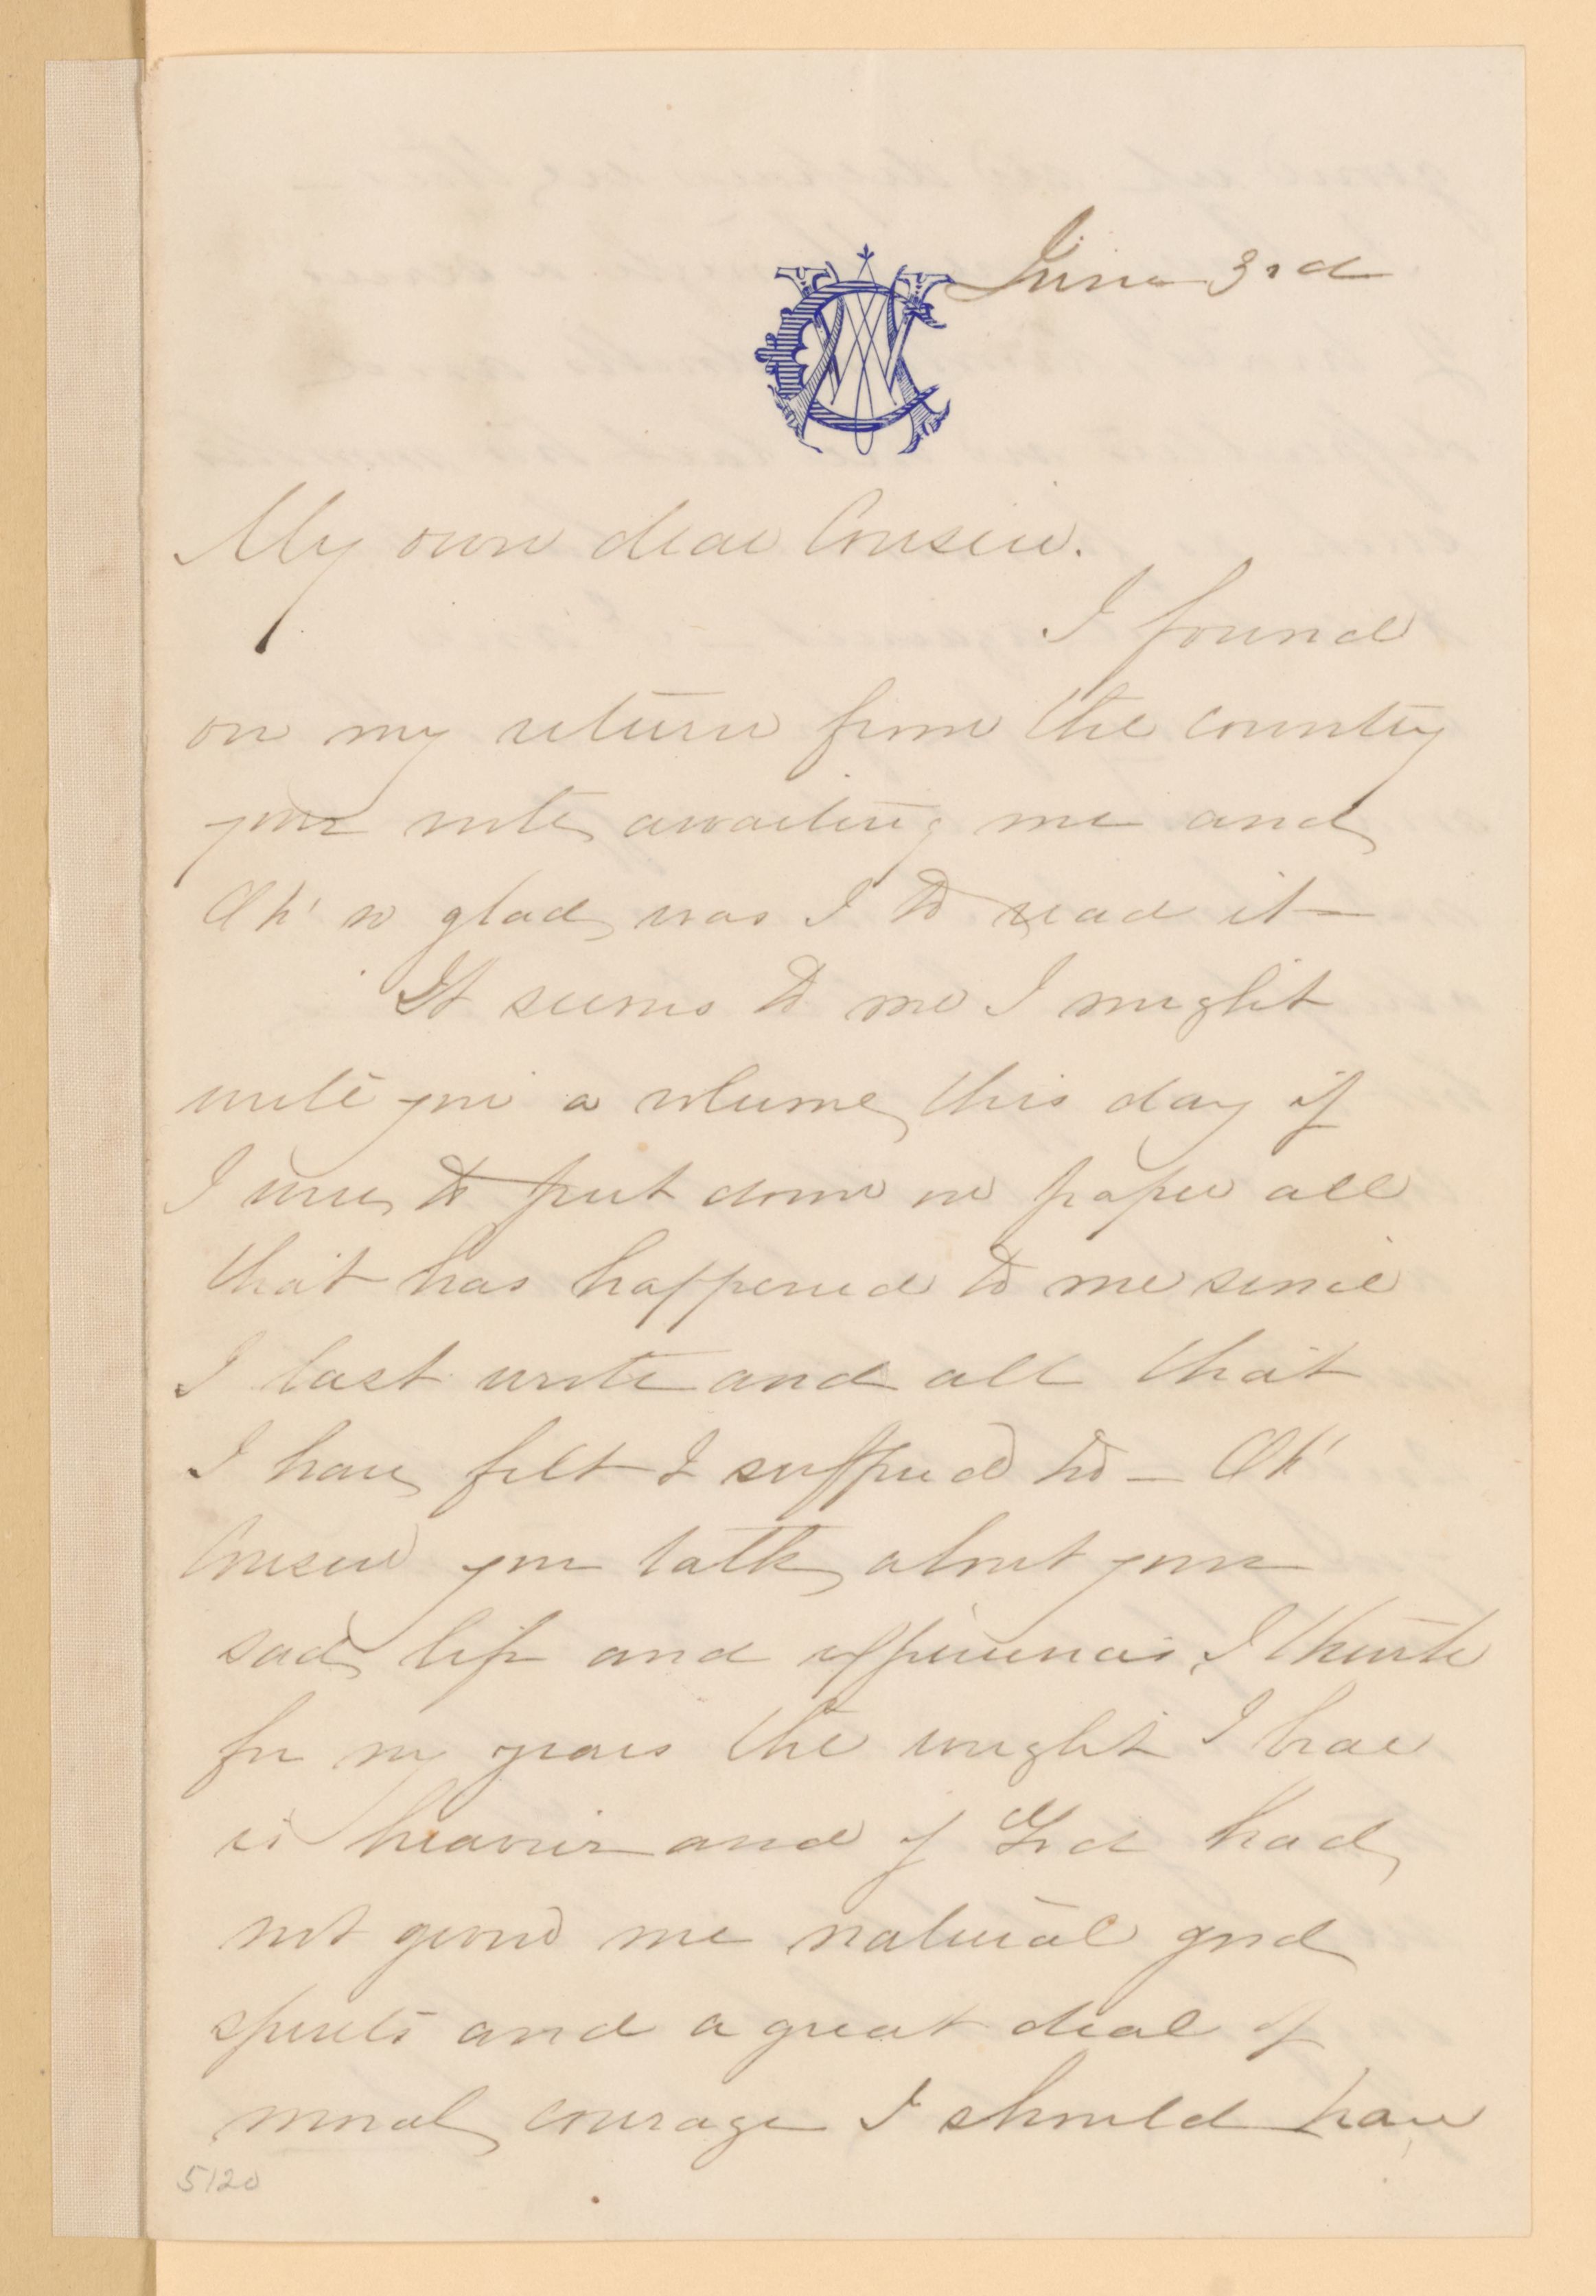 June 3rd
My own dear Cousin.
I found
on my return from the country
your note awaiting me and
Oh' so glad was I to read it —
It seems to me I might
write you a volume this day if
I were to put down on paper all
that has happened to me since
I last wrote and all that
I have felt & suffered too — Oh'
Cousin you talk about your
sad life and experiences, I think
for my years the weight I have
is heavier and if God had
not given me natural good
spirits and a great deal of
moral courage I should have
5120